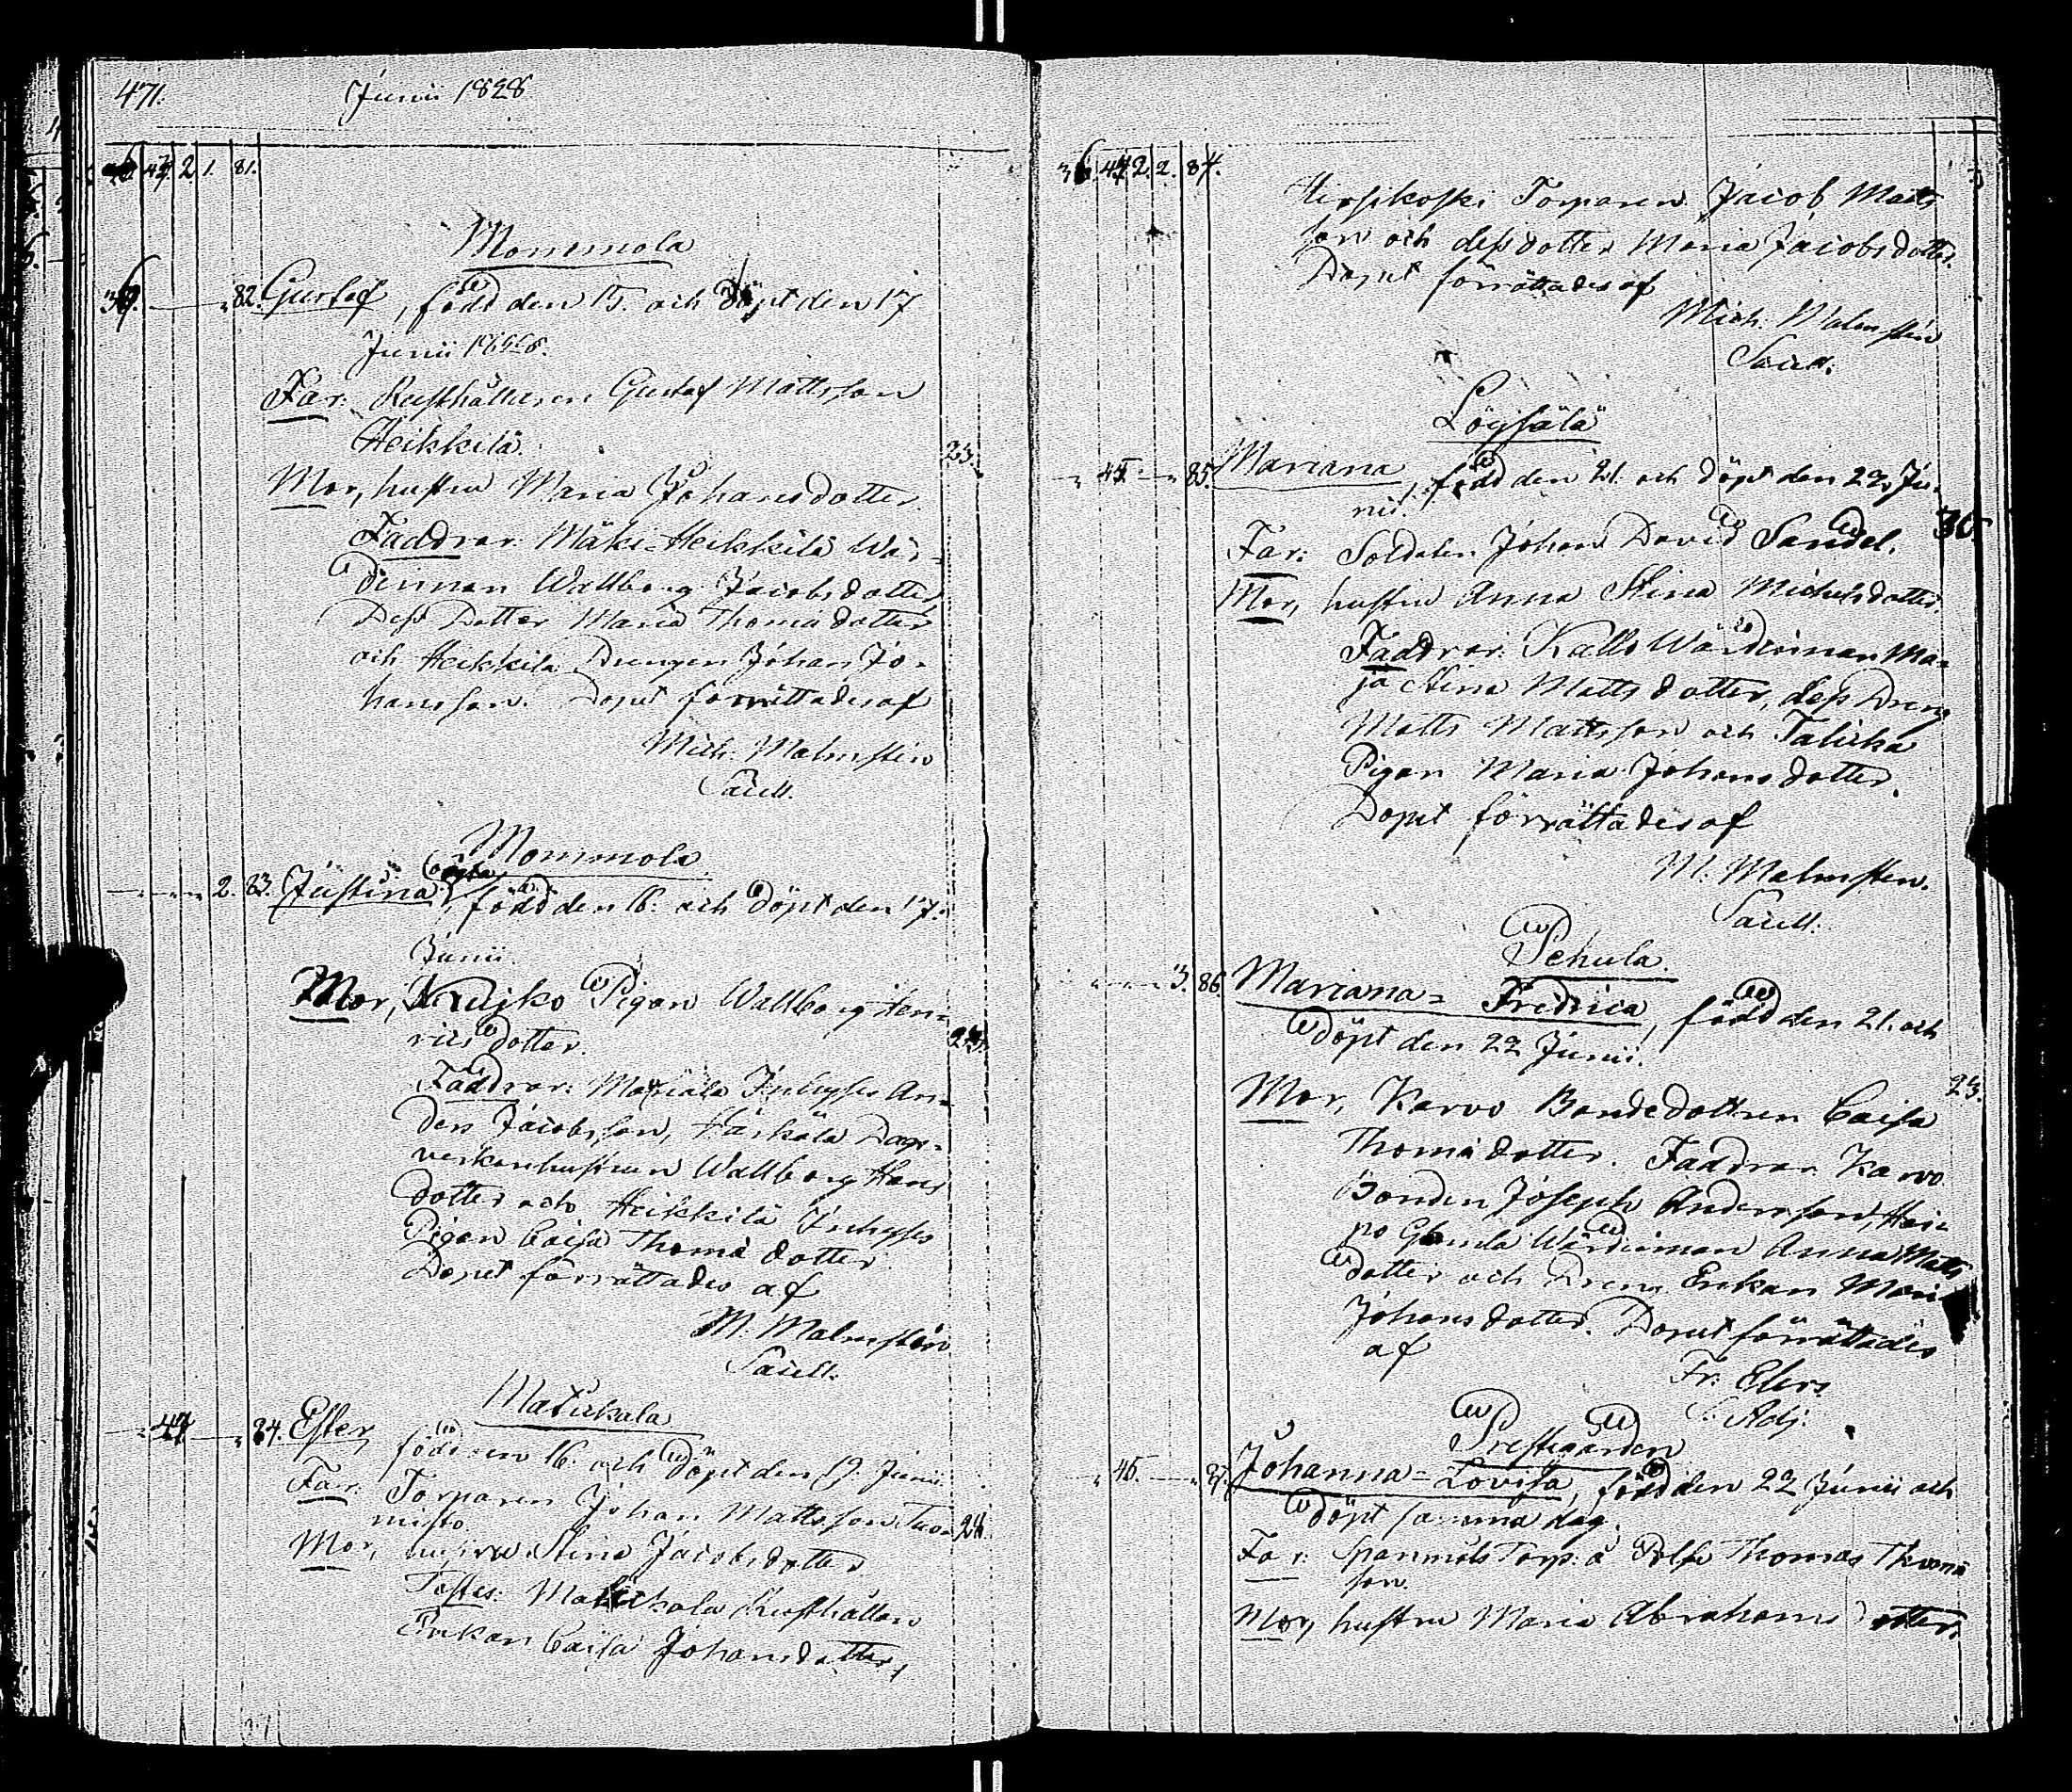 471.
Junii 1828
43. 2. 1. 81.
Mommola
82. Gustaf, född den 15. och döpt den 17
Junii 1828.
Far: Rusthållaren Gustaf Mattsson
Heikkilä.
23.
Mor, hustru Maria Johansdotter.
Faddrar: Mäki-Heikkilä Wär-
dinnan Wallborg Jacobsdotter,
Dess Dotter Maria Thomädotter
och Heikkilä Drengen Johan Jo-
hansson. Dopet förrättades af
Mich. Malmstén
Sacell.
Mommola
2. 83. Justina, född den 16. och döpt den 17.
Junii.
Mor, Krujko Pigan Wallborg Hen-
rics dotter.
Faddrar: Inhyses An-
ders Jacobsson, Härkälä Dags-
verkarhustrun Wallborg Hans
dotter och Heikkilä Inhyses
Pigan Caisa Thomä dotter.
Dopet förrättades af
M. Malmstén
Sacell.
Matickala
44 84. Ester, född den 16. och döpt den 19. Junii.
Far: Torparen Johan Mattsson Tuo-
misto.
Mor, hustru Stina Jacobsdotter
Testes: Matickala Rusthållare
Enkan Caisa Johansdotter,
36. 44. 2. 2. 84.
Hirsikoski Torparen Jacob Matts
son och dess dotter Maria Jacobsdotter.
Dopet förrättades af
Mich. Malmstén
Sacell.
Löysälä
45 85. Mariana, född den 21. och döpt den 22. Ju-
nii.
30.
Far: Soldaten Johan David Sandel.
Mor, hustru Anna Stina Michelsdotter.
Faddrar: Kallo Wärdinnan Ma-
ja Stina Mattsdotter, dess Dreng
Matts Mattsson och Talicka
Pigan Maria Johansdotter.
Dopet förrättades af
M. Malmsten.
Sacell.
Pehula
3. 86. Mariana-Fredrica, född den 21. och
döpt den 22 Junii.
23.
Mor, Karvo Bondedottren Caisa
Thomä dotter. Faddrar Karvo
Bonden Joseph Andersson,
Wärdinnan Anna Matts
dotter och Dreng Enkan Maria
Johansdotter. Dopet förrättades
af
Fr. Elers
Adj.
Prestegården
46. 87. Johanna-Lovisa, född den 22 Junii och
döpt samma dag.
Far: Spanmåls Torp: å Thomas Thomæ
son.
Mor, hustru Maria Abrahams dotter.